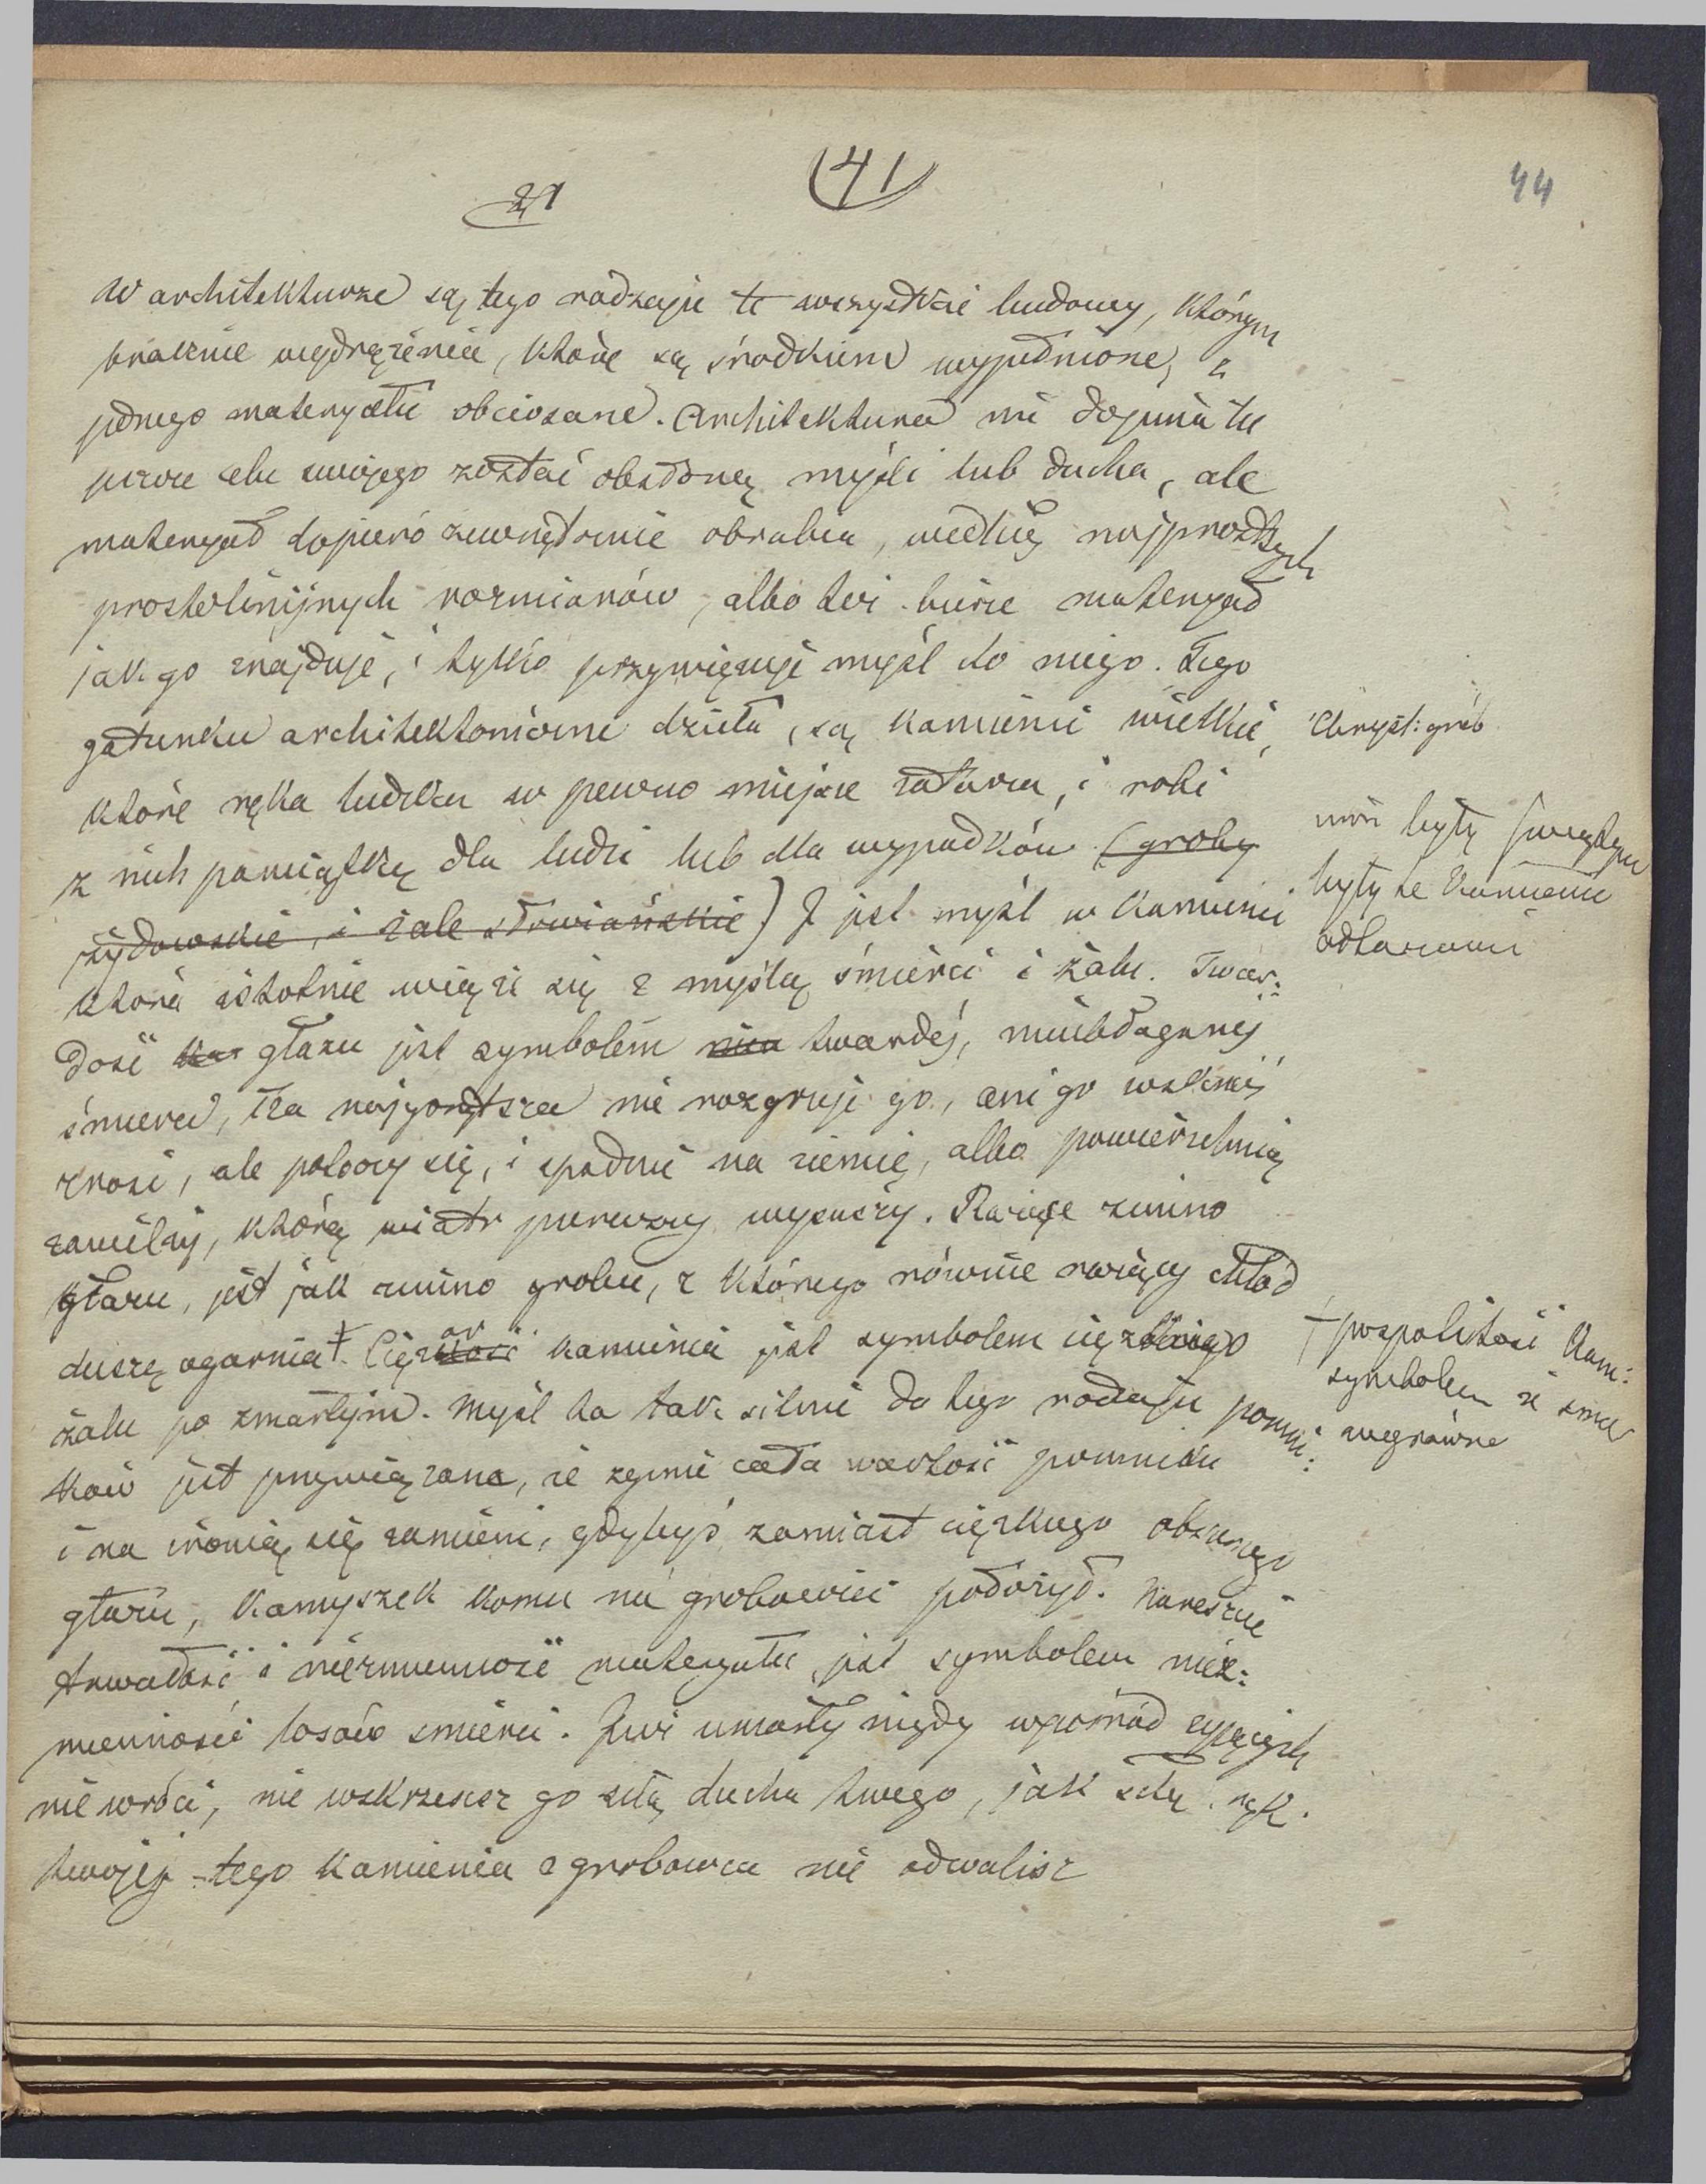 21
(41)
44
W architekturze są tego rodzaju te wszystkie budowy, którym
braknie wydrążenia, które są środkiem wypełnione, z
jednego materyału obciosane. Architektura nie dopina tu
celu swojego zostać obsłoną myśli lub ducha, ale
materyał dopiero zewnętrznie obrabia, według najprostszych
prostolinijnych rozmiarów, albo też bierze materyał
jak go znajduje, i tylko przywięzuje myśl do niego. Tego
gatunku architektoniczne dzieła, są kamienie wielkie,
które ręka ludzka w pewno miejsce zatacza, i robi
z nich pamiątkę dla ludzi lub dla wypadków (groby
żydowskie, i żale słowiańskie) I jest myśl w kamieniu
która istotnie wiąże się z myślą śmierci i żalu. Twar:
dość głazu jest symbolem twardej, nieubłaganej
śmierci, łza najgorętsza nie rozgrzeje go, ani go wskroś
, ale potoczy się, i spadnie na ziemię, albo powierzchnią
zawilży, którą wiatr pierwszy wysuszy. Rażące zimno
głazu, jest jak zimno grobu, z którego równie rażący chłód
duszę ogarnia †. Ciężar kamienia jest symbolem ciężkiego
żalu po zmarłym. Myśl ta tak silnie do tego rodzaju pomni:
ków jest przywiązana, że zginie cała wartość pomniku
i na ironią się zamieni, gdybyś zamiast ciężkiego obszernego
głazu, kamyszek komu na grobowiec położył. Nareszcie
trwałość i niezmienność materyału jest symbolem niez:
mienności losów śmierci. Już umarły nigdy wpośród żyjących
nie wróci, nie wskrzesisz go siłą ducha twego, jak siłą ręk.
twojej tego kamienia z grobowca nie odwalisz
Chryst: grób
były
były te kamienie
ołtarzami
† pospolitość kam:
symbolem że śmier